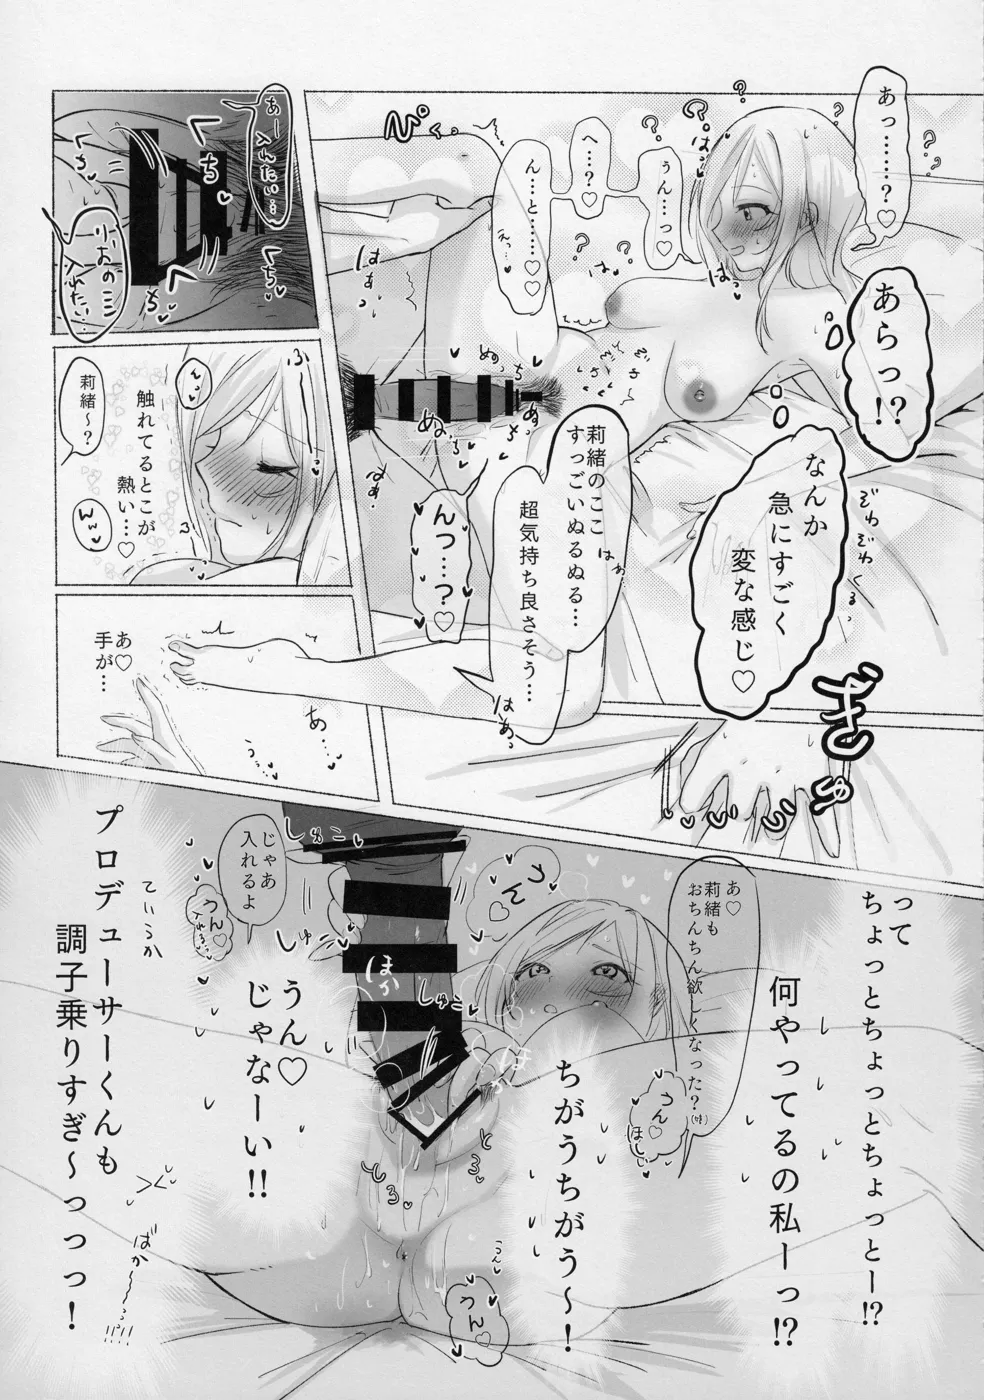 あっ……？♡
うん…っ
へ…？♡
ん…と……♡♡
えっ…♡
あらっ！？
なんか
急にすごく
変な感じ♡
ぞわぞわくる
莉緒のここ
すっごいぬるぬる…
超気持ち良さそう…
んっ…？♡
はぁっ
あー入れたい…
りおのココ
入れたい…
くち
くち
触れてるとこが
熱い…♡
莉緒〜？
あ♡
手が…
あ…
ぎゅ
って
ちょっとちょっとちょっとー！？
何やってるの私ーっ！？
あ♡
莉緒も
おちんちん欲しくなった？
うん♡
ほしい
うん♡
ちがうちがう〜！
じゃあ
入れるよ
うん♡
入れる
うん♡
じゃなーい！！
しゅこ
しゅこ
しゅこ
ほか
とろ
とろ
うん♡
ていうか
プロデューサーくんも
調子乗りすぎ〜っっっ！
ばか〜っ!!!